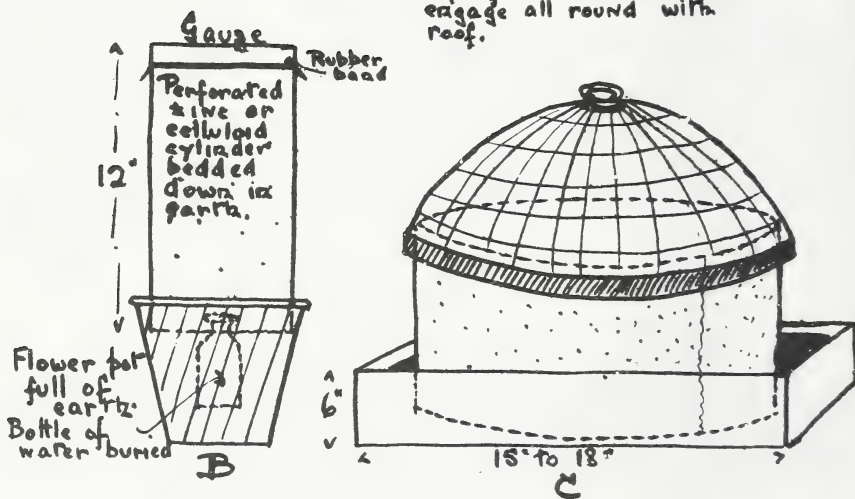 engage all round with
roof.
Gauze
Rubber
band
Perforated
zinc or
celluloid
cylinder
bedded
down in
earth.
12"
Flower pot
full of
earth.
Bottle of
water buried
B
6"
15" to 18"
C